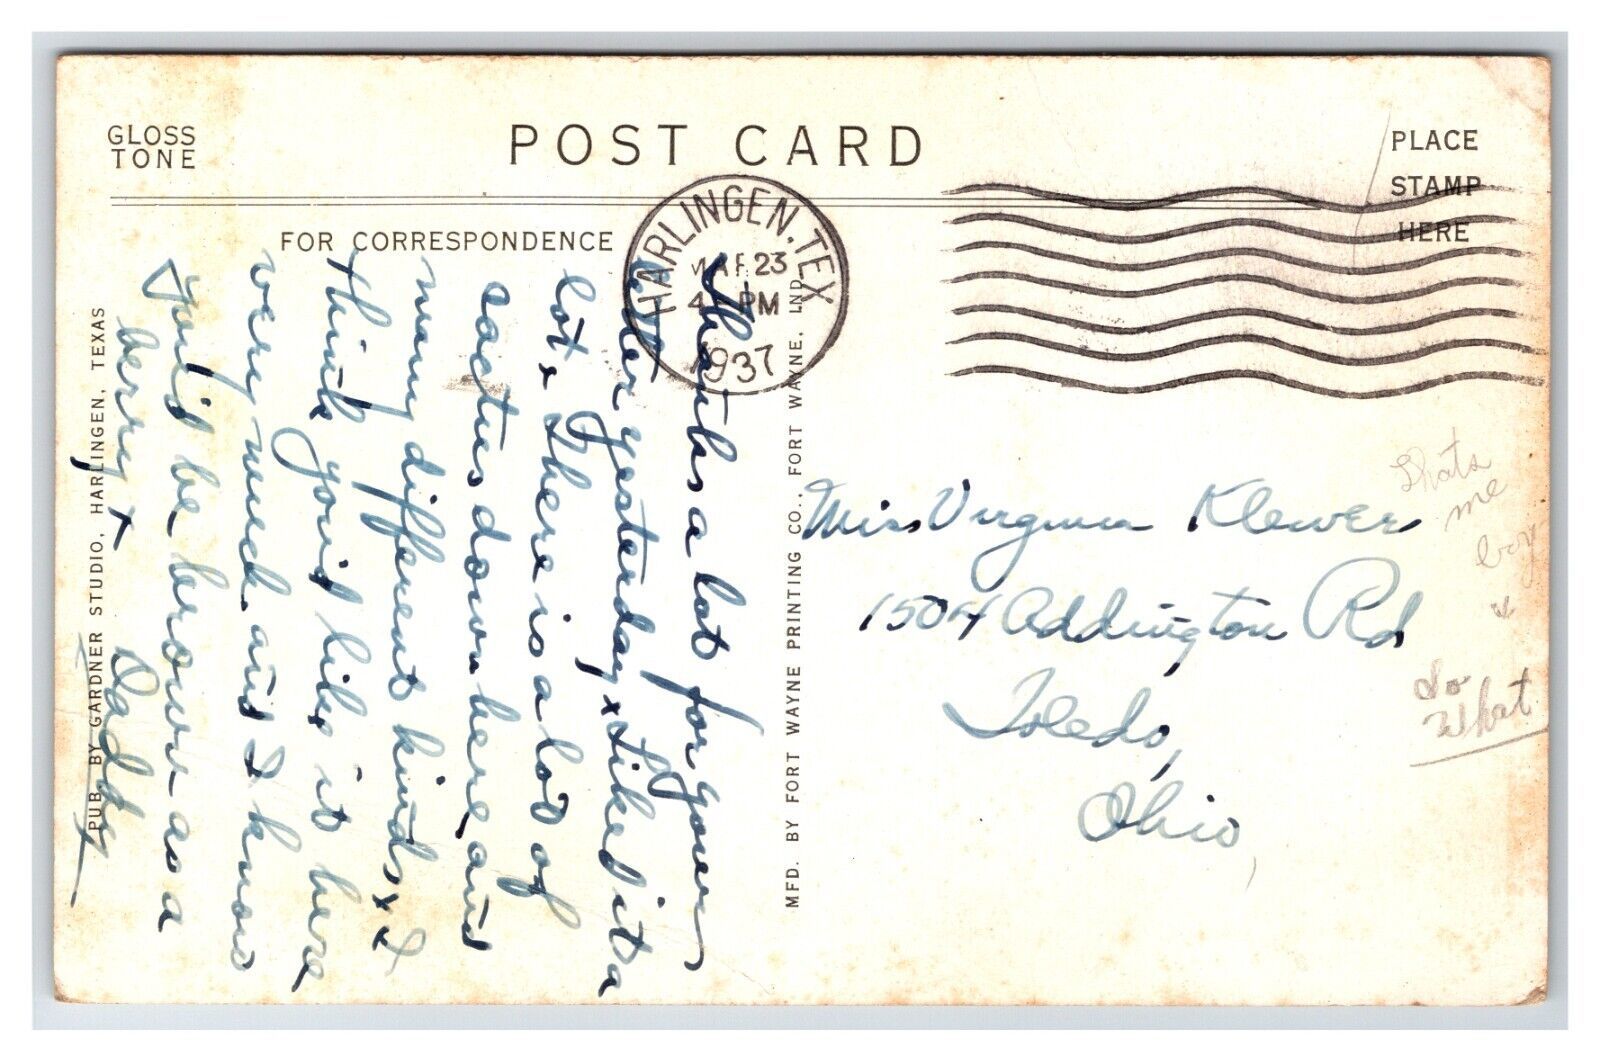 GLOSS
TONE
POST CARD
PLACE
STAMP
HERE
FOR CORRESPONDENCE
HARLINGEN, TEX
MAR 23
4 PM
1937
Thanks a lot for your
letter yesterday x Liked it a
lot x There is a lot of
cactus down here and
many different kinds x x I
think you'd like it here
very much and I know
You'd be brown as a
berry x Daddy
PUB. BY GARDNER STUDIO, HARLINGEN, TEXAS
MFD. BY FORT WAYNE PRINTING CO., FORT WAYNE, IND.
Miss Virginia Klewer
1504 Addington Rd
Toledo,
Ohio,
Thats
me
boy
So
What